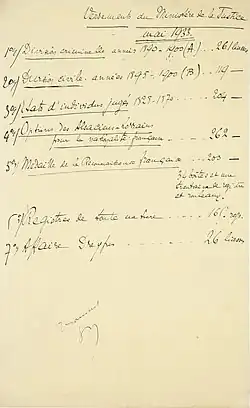 Versement du Ministère de la Justice
mai 1933.
1º/ Division criminelle années 1890-1900 (A) .. 261 liasses
2º/ Division civile. années 1895-1900 (B) .. 119 —
3º/ Etats d'individus jugés 1825-1870 .... 209 —
4º/ Options des Alsaciens-Lorrains
pour la nationalité française .... 262 —
5º/ Médaille de la Reconnaissance française .... 203 —
34 boîtes et une
de registres
et rouleaux.
Registres de toute nature .... reg.
7º/ Affaire Dreyfus .... 26 liasses